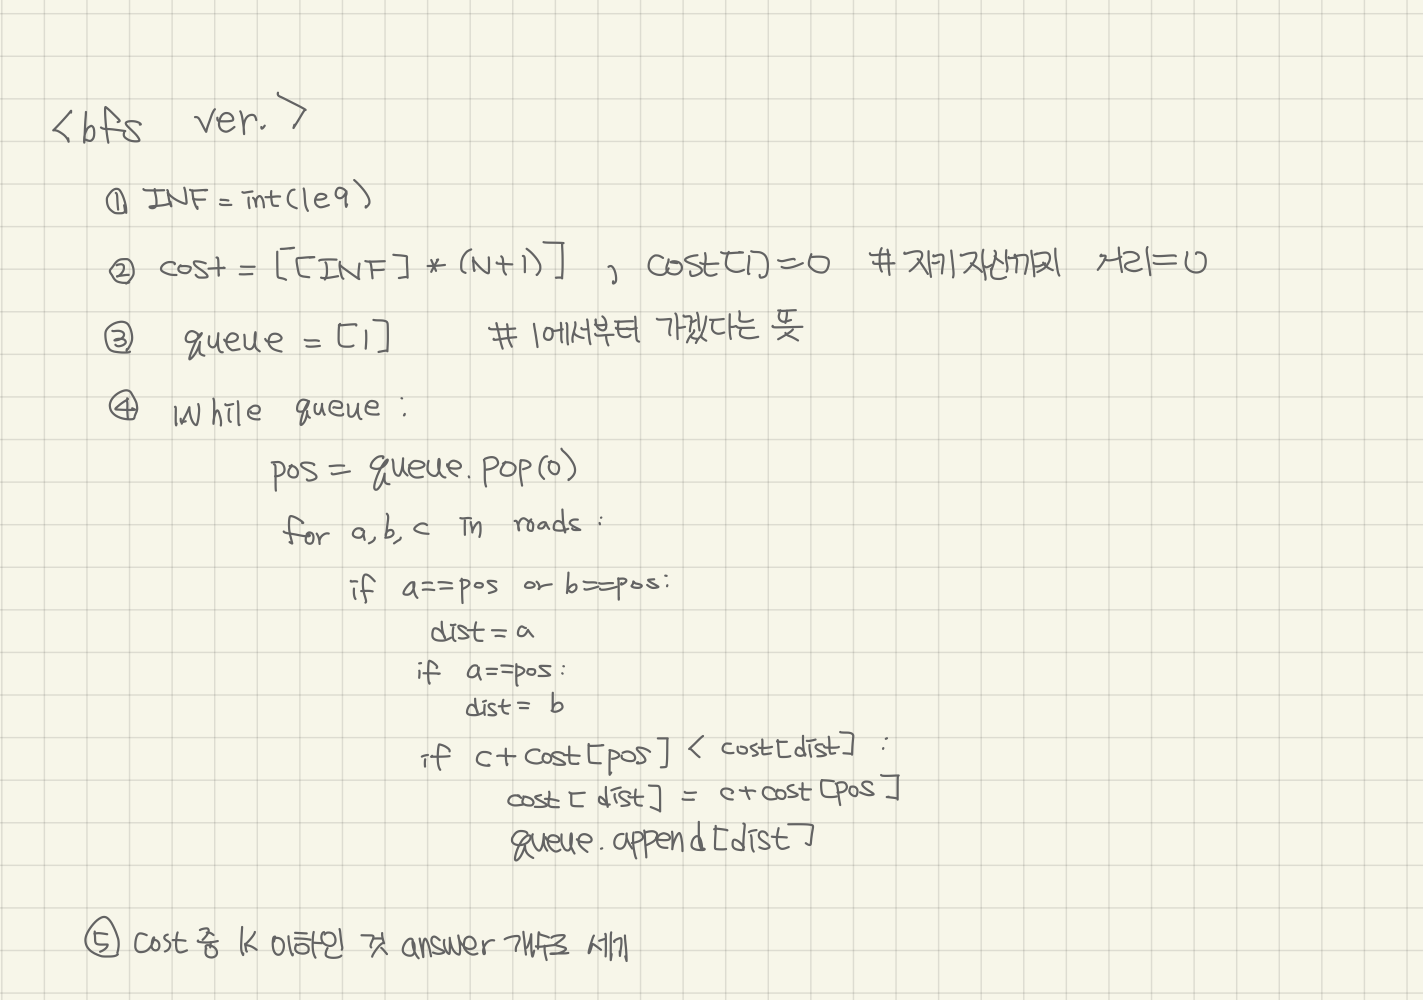 <bfs ver.>
① INF = int(1e9)
② cost = [[INF] * (N+1)] , cost[1]=0 # 자기자신까지 거리=0
③ queue = [1] # 1에서부터 가겠다는 뜻
④ while queue :
pos = queue.pop(0)
for a,b,c in roads :
if a==pos or b==pos:
dist = a
if a==pos:
dist= b
if c+cost[pos] < cost[dist] :
cost[dist] = c+cost[pos]
queue.append[dist]
⑤ cost 중 K 이하인 것 answer 개수로 세기